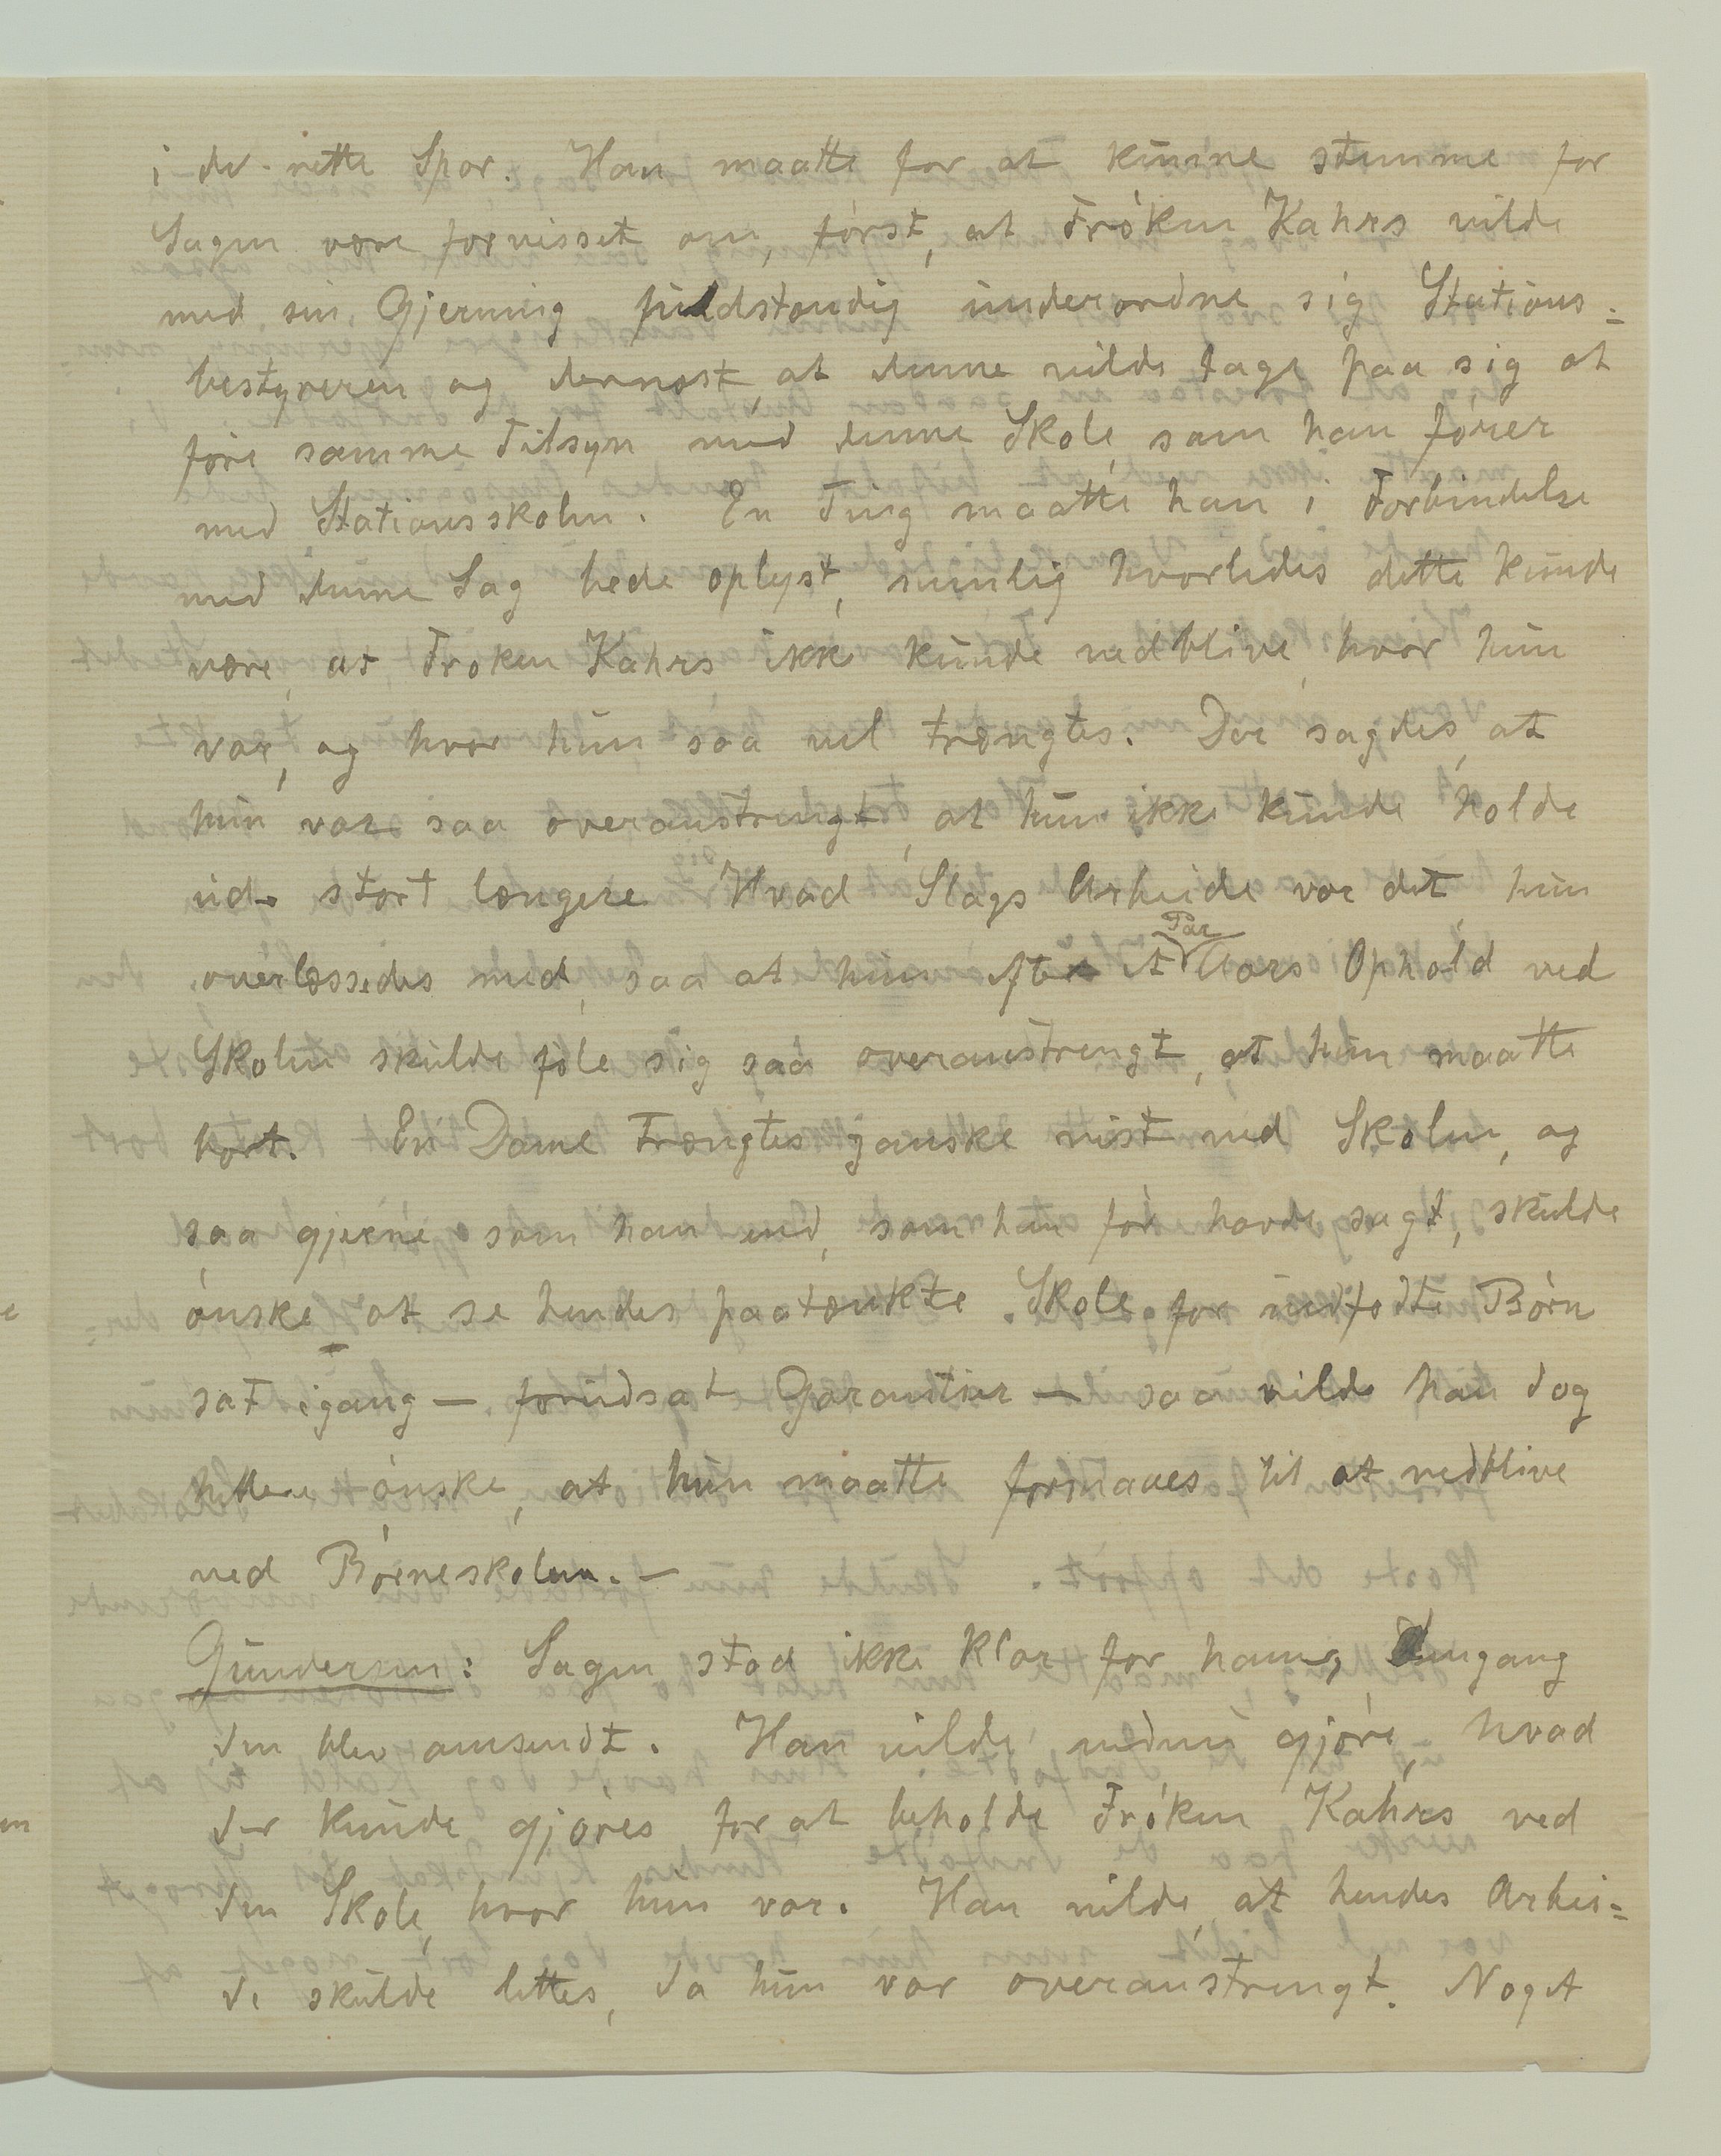 i det rette Spor. Han maatte for at kunne stemme for
Sagen være forvisset om, først, at Frøken Kahrs vilde
med sin Gjerning fuldstændig underordne sig Stations=
bestyreren og dernæst, at denne vilde tage paa sig at
føre samme Tilsyn med denne Skole, som han fører
med Stationsskolen. En Ting maatte han i Forbindelse
med denne Sag bede oplyst, nemlig hvorledes dette kunde
være, at Frøken Kahrs ikke kunde vedblive, hvor hun
var, og hvor hun saa vel trængtes. Der sagdes, at
hun var saa overanstrengt, at hun ikke kunde holde
ud stort længere. Hvad Slags Arbeide var det, hun
overlæssedes med, saa at hun efter et Par Aars Ophold ved
Skolen skulde føle sig saa overanstrengt, at hun maatte
bort. En Dame trængtes ganske vist ved Skolen, og
saa gjerne som han end, som han før havde sagt, skulde
ønske at se hendes paatænkte Skole for indfødte Børn
sat igang — forudsat Garantier — saa vilde han dog
hellere ønske, at hun maatte formaaes til at vedblive
ved Børneskolen. —
Gundersen: Sagen stod ikke klar for ham, dengang
den blev omsendt. Han vilde nødig gjøre, hvad
der kunde gjøres for at beholde Frøken Kahrs ved
den Skole, hvor hun var. Han vilde, at hendes Arbei=
de skulde lettes, da hun var overanstrengt. Noget